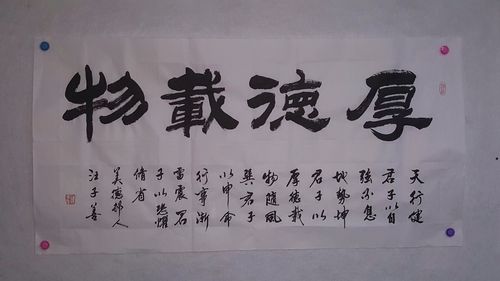 厚德載物
天行健
君子以自
强不息
地勢坤
君子以
厚德載
物隨風
巽君子
以申命
行事洊
雷震君
子以恐懼
脩省
美德人
汪子善